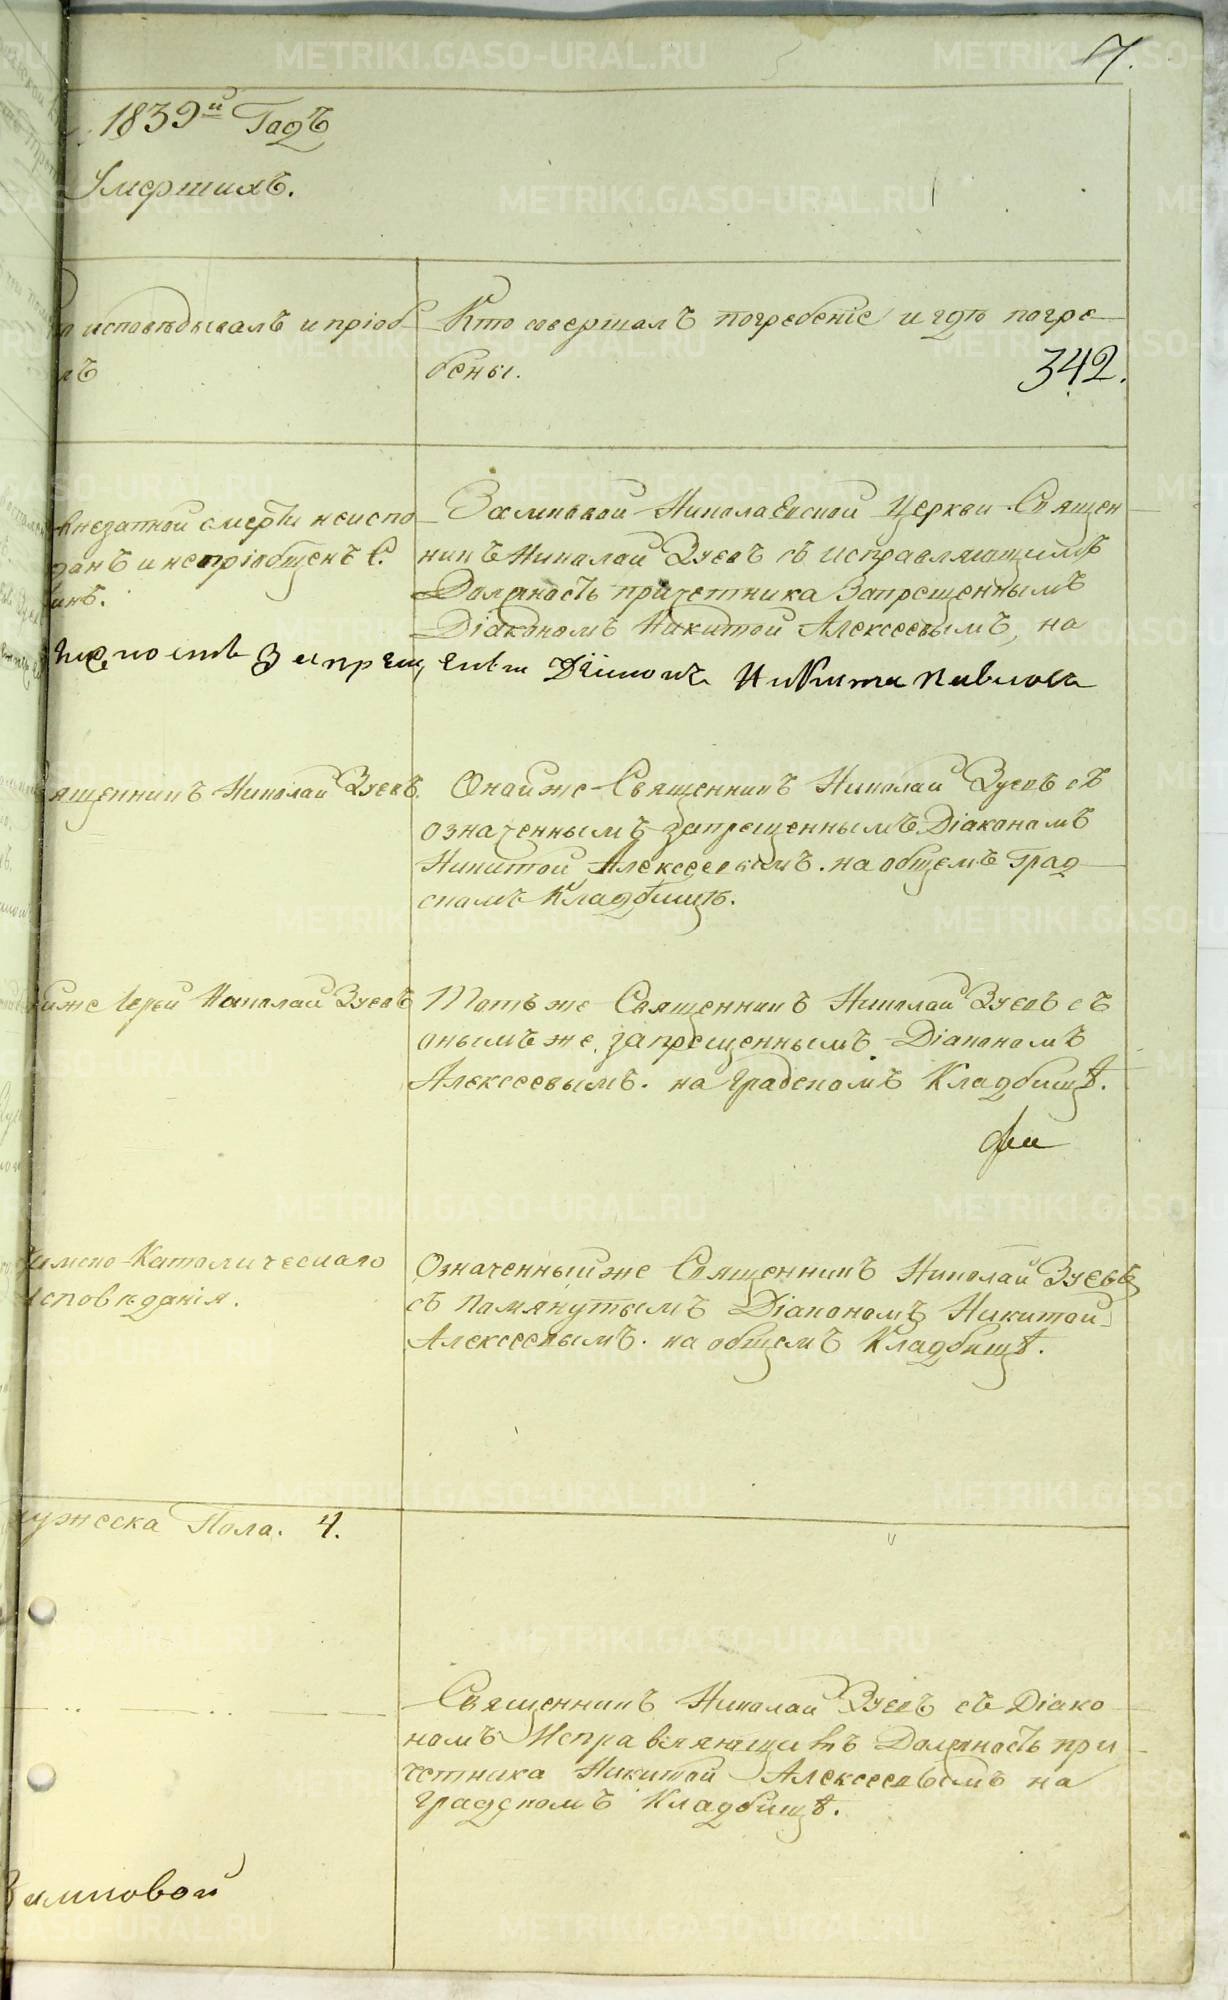 7.
1839й Годъ
Умершихъ.
исповѣдывалъ и пріоб-
лъ
Кто совершалъ погребеніе и гдѣ погре-
бены.
342.
внезатной смерти неиспо-
данъ и непріобщенъ С.
инъ.
Замковой Николаевской Церкви Священ-
никъ Николай Зуевъ съ исправляющимъ
Должность причетника Запрещеннымъ
Діакономъ Никитой Алексеевымъ, на
Діаконъ Никита
ященникъ Николай Зуевъ.
Оной же Священникъ Николай Зуевъ съ
означеннымъ запрещеннымъ Діакономъ
Никитой Алексеевымъ. на общемъ Град-
скомъ Кладбищѣ.
же Іерей Николай Зуевъ
Тотъ же Священникъ Николай Зуевъ съ
онымъ же запрещеннымъ Діакономъ
Алексеевымъ. на Градскомъ Кладбищѣ.
имско-Католическаго
исповѣданія.
Означенный же Священникъ Николай Зуевъ
съ Помянутымъ Діакономъ Никитой
Алексеевымъ. на общемъ Кладбищѣ.
ужеска Пола. 4.
Священникъ Николай Зуевъ съ Діако-
номъ Исправляющимъ Должность при-
четника Никитой Алексеевымъ на
градскомъ Кладбищѣ.
Замковой
METRIKI.GASO-URAL.RU